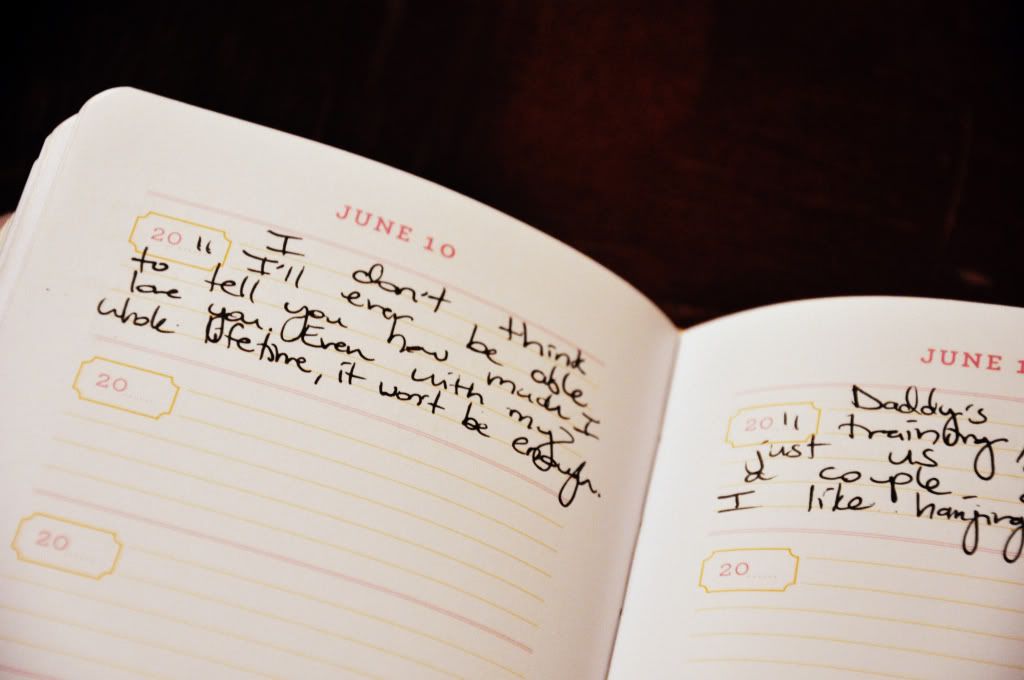 JUNE 10
2011 I don't think
I'll ever be able
to tell you how much I
love you. Even with my
whole lifetime, it won't be enough.
20
20
JUNE 1
Daddy's
2011 training
just us
a couple
I like hanging
20